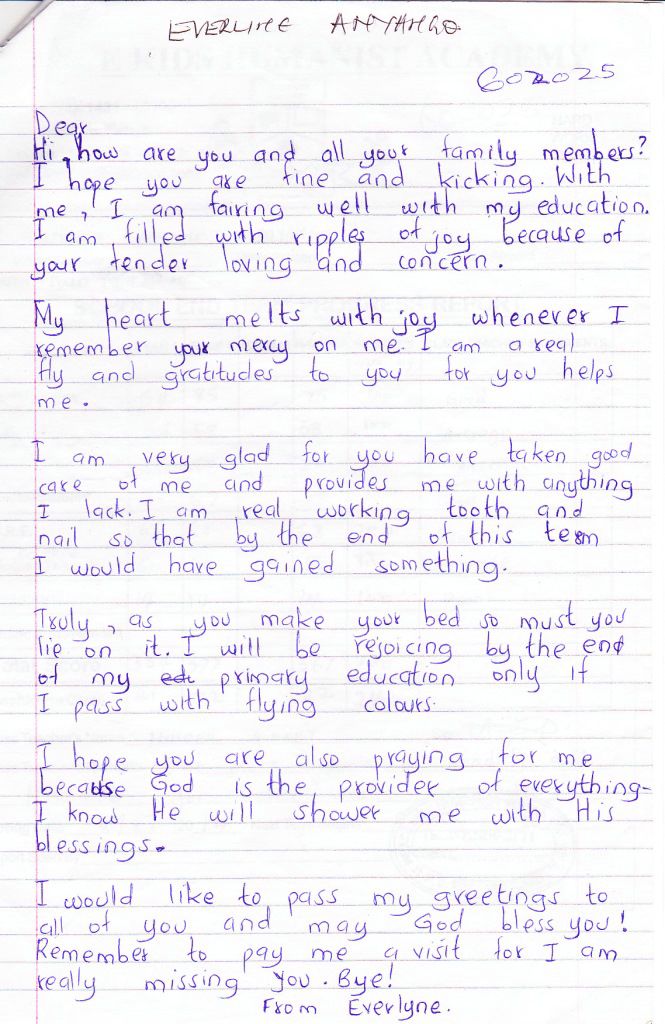 EVERLINE ANYANGO
602025
Dear
Hi, how are you and all your family members?
I hope you are fine and kicking. With
me, I am fairing well with my education.
I am filled with ripples of joy because of
your tender loving and concern.
My heart melts with joy whenever I
remember your mercy on me. I am a real
fly and gratitudes to you for you helps
me.
I am very glad for you have taken good
care of me and provides me with anything
I lack. I am real working tooth and
nail so that by the end of this term
I would have gained something.
Truly, as you make your bed so must you
lie on it. I will be rejoicing by the end
of my primary education only if
I pass with flying colours.
I hope you are also praying for me
because God is the provider of everything-
I know He will shower me with His
blessings.
I would like to pass my greetings to
all of you and may God bless you!
Remember to pay me a visit for I am
really missing you. Bye!
From Everlyne.